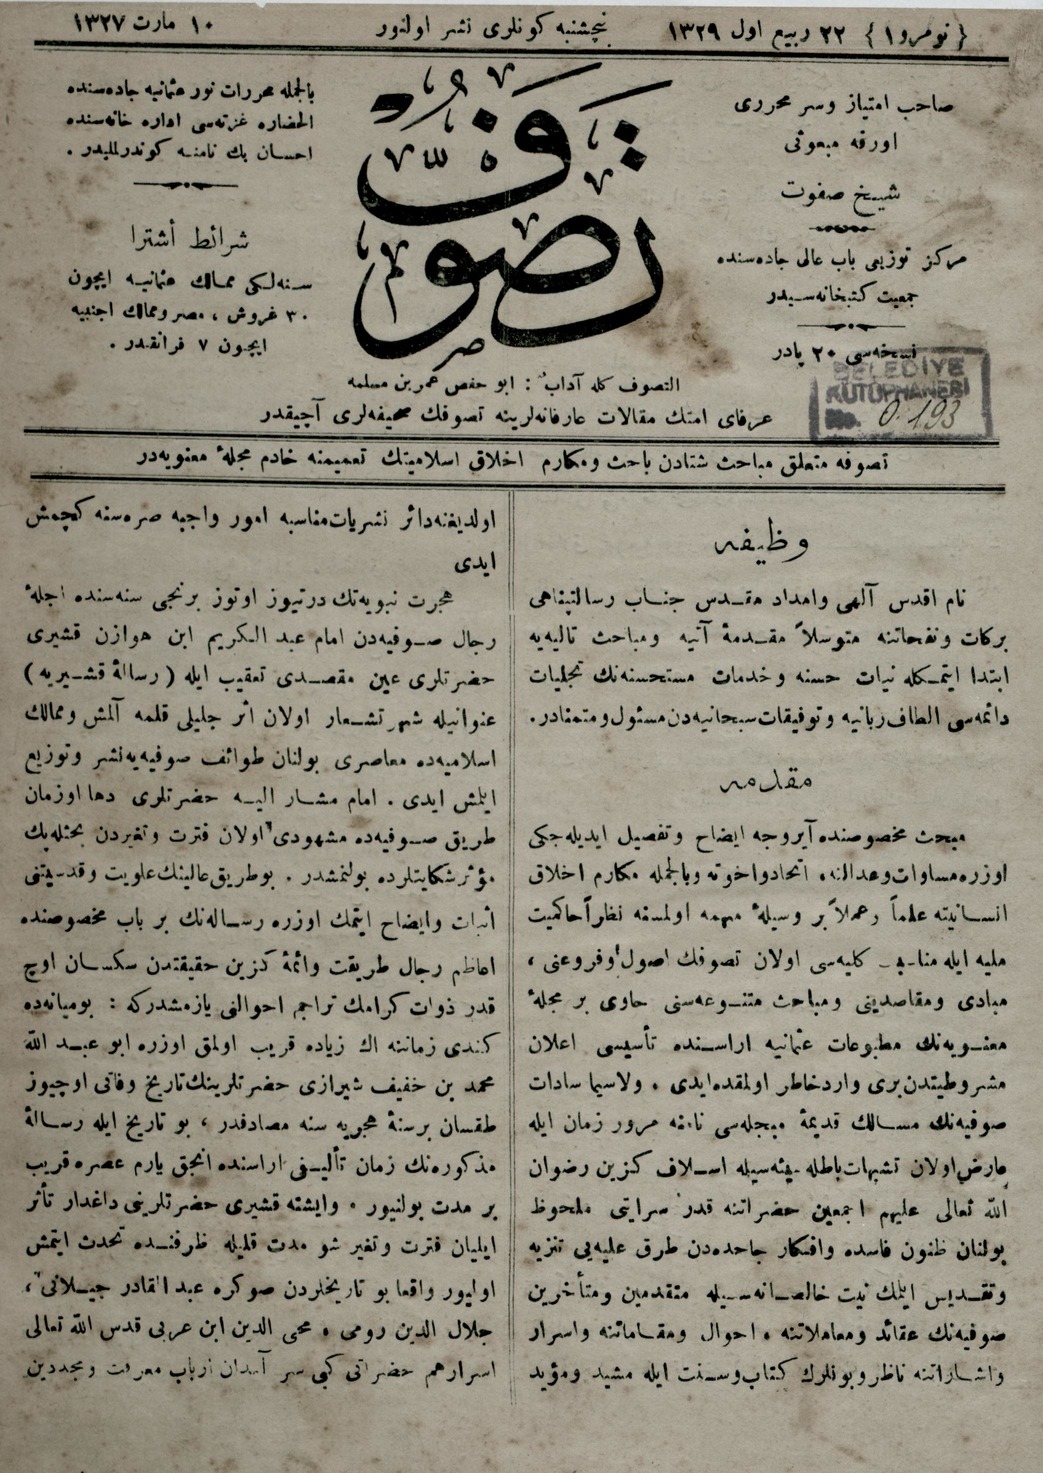 { نومرو ۱ } ۲۲ ربیع اول ۱۳۲۹ پنچشنبه کونلری نشر اولنور ۱۰ مارت ۱۳۲۷
صاحب امتیاز و سر محرری
اورفه مبعوثی
شیخ صفوت
مرکز توزیعی باب عالی جاده‌سنده
جمعیت کتبخانه‌سیدر
نسخه‌سی ۲۰ پاره‌در
تصوف
بالجمله محررات نور عثمانیه جاده‌سنده
الحضاره غزته‌سی اداره خانه‌سنده
احسان بك نامنه کوندرلملیدر .
شرائط اشترا
سنه‌لکی ممالك عثمانیه ایچون
۳۰ غروش ، مصر و ممالك اجنبیه
ایچون ۷ فرانقدر .
التصوف کله آداب : ابو حفص عمر بن مسلمه
عرفای امتك مقالات عارفانه‌لرینه تصوفك صحیفه‌لری آچیقدر
BELEDİYE
KÜTÜPHANESİ
No. 0.193
تصوفه متعلق مباحث شتادن باحث و مکارم اخلاق اسلامیتك تعمیمنه خادم مجلهٔ معنویه‌در
وظیفه
نام اقدس آلهی وامداد مقدس جناب رسالتپناهی
برکات ونفحاتنه متوسلاً مقدمهٔ آتیه ومباحث تالیه‌یه
ابتدا ایتمکله نیات حسنه و خدمات مستحسنه‌نك تجلیات
دائمه‌سی الطاف ربانیه و توفیقات سبحانیه‌دن مسئول و متمنادر .
مقدمه
مبحث مخصوصنده آیروجه ایضاح و تفصیل ایدیله‌جکی
اوزره مساوات وعدالته، اتحاد و اخوته و بالجمله مکارم اخلاق
انسانیته علماً وعملاً بر وسیلهٔ مهمه اولمسنه نظراً حاکمیت
ملیه ایله کلیه‌سی اولان تصوفك اصول و فروعنی ،
مبادی ومقاصدینی ومباحث متنوعه‌سنی حاوی بر مجلهٔ
معنویه‌نك مطبوعات عثمانیه اراسنده تأسیسی اعلان
مشروطیتدن بری وارد خاطر اولمقده‌ایدی . ولاسیما سادات
صوفیه‌نك مسالك قدیمهٔ مبجله‌سی نامنه مرور زمان ایله
عارض اولان تشبهات باطله اسلاف کزین رضوان
الله تعالی علیهم اجمعین حضراتنه قدر سرایتی ملحوظ
بولنان ظنون فاسده وافکار جاحده‌دن طرق علیه‌یی تنزیه
وتقدیس ایلمك نیت خالصانه‌سیله متقدمین ومتأخرین
صوفیه‌نك عقائد ومعاملاتنه ، احوال ومقاماتنه واسرار
واشاراتنه ناظر وبونلرك کتاب و سنت ایله مشید ومؤید
اولدیغنه‌دائر نشریات‌مناسبه امور واجبه صره‌سنه کچمش
ایدی
هجرت نبویه‌نك درتیوز اوتوز برنجی سنه‌سنده اجلهٔ
رجال صوفیه‌دن امام عبد الکریم ابن هوازن قشیری
حضرتلری عین مقصدی تعقیب ایله ( رسالهٔ قشیریه )
عنوانیله شهرتشعار اولان اثر جلیلی قلمه آلمش وممالك
اسلامیه‌ده معاصری بولنان طوائف صوفیه‌یه نشر وتوزیع
ایلمش ایدی . امام مشار الیه حضرتلری دها اوزمان
طریق صوفیه‌ده مشهودی اولان فترت وتغیردن بحثله‌پك
مؤثر شکایتلرده بولنمشدر . بو طریق عالینك علویت وقدسیتنی
اثبات وایضاح ایتمك اوزره رساله‌نك بر باب مخصوصنده
اعاظم رجال طریقت وائمهٔ کزین حقیقتدن سکسان اوچ
قدر ذوات کرامك تراجم احوالنی یازمشدرکه : بومیانه‌ده
کندی زماننه اك زیاده قریب اولمق اوزره ابو عبد الله
محمد بن خفیف شیرازی حضرتلرینك تاریخ وفاتی اوچیوز
طقسان برسنهٔ هجریه سنه مصادفدر ، بو تاریخ ایله رسالهٔ
مذکوره‌نك زمان تألیفی اراسنده انجق یارم عصره قریب
بر مدت بولنیور . وایشته قشیری حضرتلرینی داغدار تأثر
ایلیان فترت وتغیر شو مدت قلیله ظرفنده تحدث ایتمش
اولیور واقعا بو تاریخلردن صوکره عبد القادر جیلانی ،
جلال الدین رومی ، محی الدین ابن عربی قدس الله تعالی
اسرارهم حضراتی کبی سر آمدان ارباب معرفت ومجددین